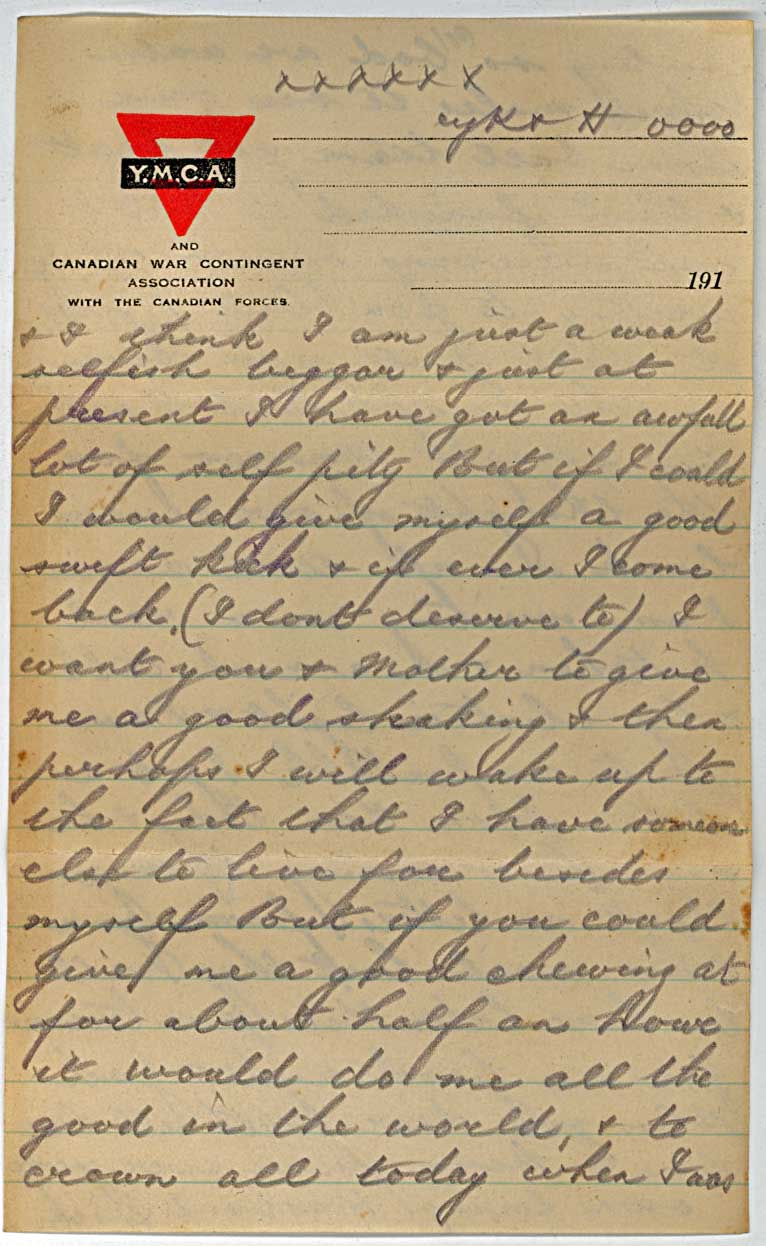 xxxxxx
H oooo
Y.M.C.A.
AND
CANADIAN WAR CONTINGENT
ASSOCIATION
WITH THE CANADIAN FORCES.
191
& I think I am just a weak
selfish beggar & just at
present I have got an awfull
lot of self pity But if I could
I would give myself a good
swift kick & if ever I come
back. (I dont deserve to) I
want you & Mother to give
me a good shaking & then
perhaps I will wake up to
the fact that I have someone
else to live for besides
myself But if you could
give me a good chewing at
for about half an howr
it would do me all the
good in the world, & to
crown all today when I was